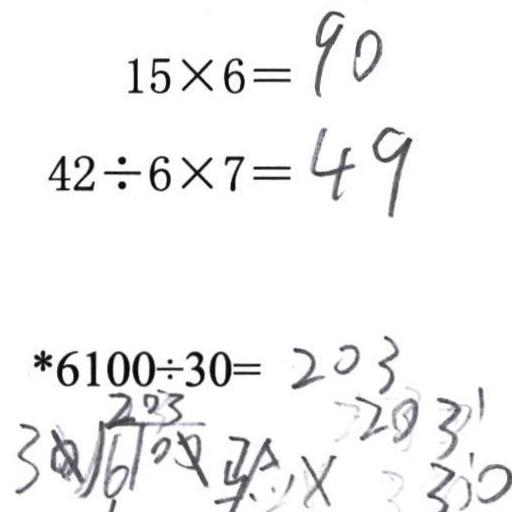 15×6=90
42÷6×7=49
*6100÷30= 203
203
30 6100 验: × 203
30